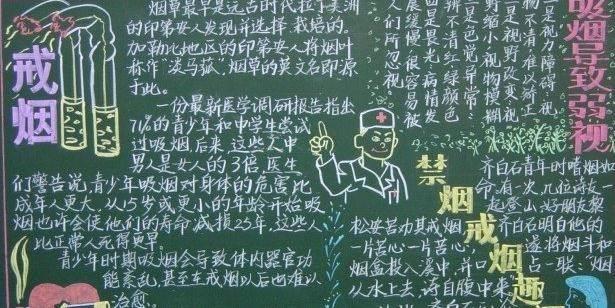 戒烟
烟草最早是远古时代拉丁美洲
的印第安人发现并选择栽培的。
加勒比地区的印第安人将烟叶
称作"淡马菰",烟草的英文名即源
于此。
一份最新医学调研报告指出
71%的青少年和中学生尝试
过吸烟,后来,这些人中
男人是女人的3倍,医生
们警告说,青少年吸烟对身体的危害比
成年人更大,从15岁或更小的年龄开始吸
烟也许会使他们的寿命减掉25年,这些人
比正常人死得更早。
青少年时期吸烟会导致体内器官功
能紊乱,甚至在戒烟以后也难以
治愈。
吸烟导致弱视
是视力障碍,视
物不清难以矫正
二是视野改变:视
野缩小,视物模糊
三是色觉异常:
辨不清红绿颜色
四是是光,病情发
展缓慢,很容易被
人们所忽视
禁烟戒烟趣
齐白石青年时嗜烟如
命,有一次,几位诗友
登山,好朋友黎
松安苦劝其戒烟,齐白石明白他的
一片苦心,一片苦心,遂将烟斗和
烟盒投入溪中,并口占一联:
从水上去,诗自腹中来